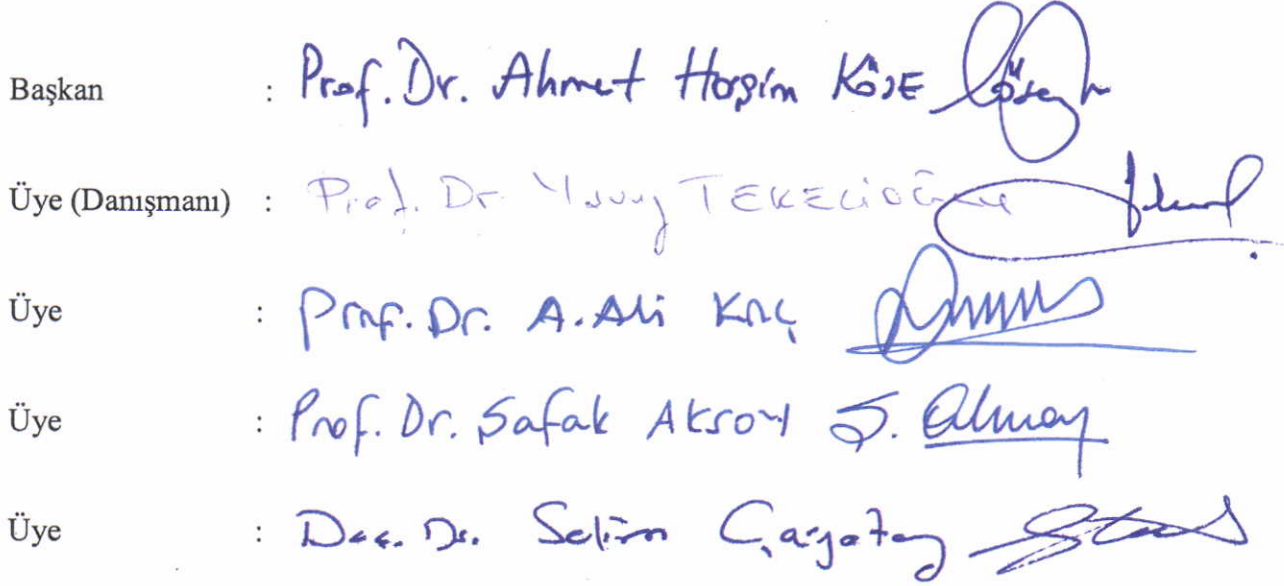 Başkan : Prof. Dr. Ahmet Haşim KÖSE
Üye (Danışmanı) : Prof. Dr. Yavuz TEKELİOĞLU
Üye : Prof. Dr. A. Ali KOÇ
Üye : Prof. Dr. Şafak AKSOY
Üye : Doç. Dr. Selim Çağatay